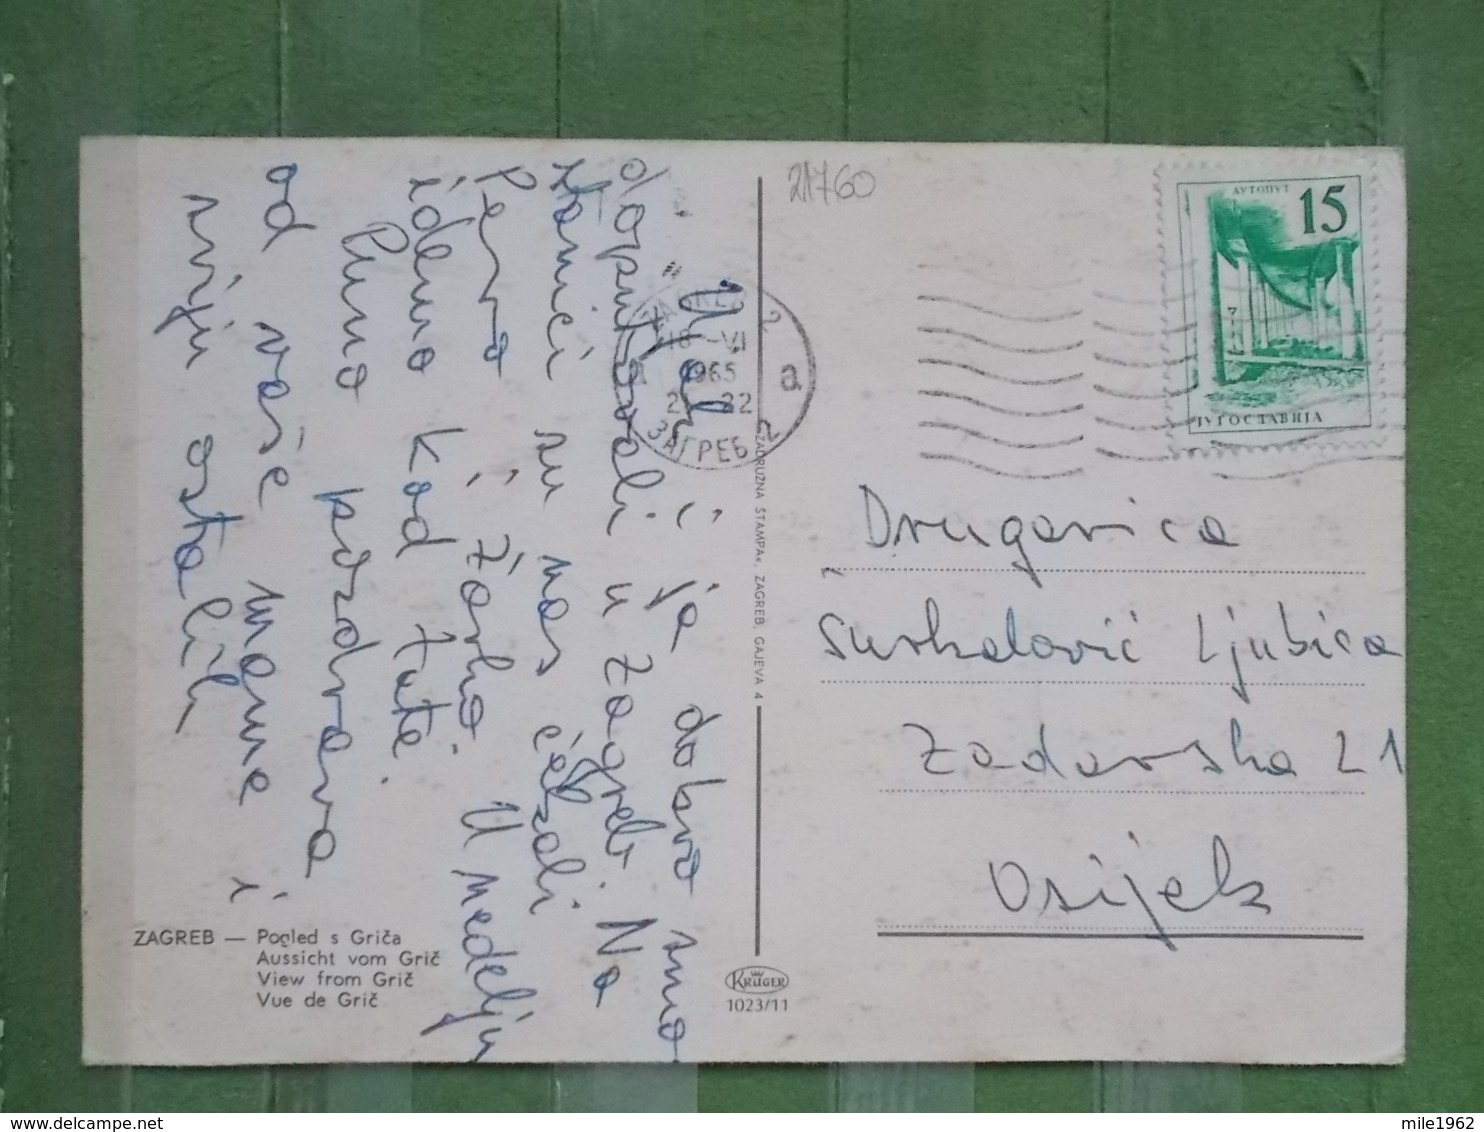 21760
АУТОПУТ
15
ЈУГОСЛАВИЈА
ZAGREB 2
18 -VI
1965
22
a
ЗАГРЕБ 2
i ja dobro smo
doputovali u Zagreb. Na
stanici su nas čekali
Pero i Žarko. U nedelju
idemo kod tate.
Puno pozdrava
od vaše mame i
sviju ostalih,
ZADRUŽNA ŠTAMPA«, ZAGREB, GAJEVA 4
Drugarica
Ljubica
Zadarska 21
Osijek
ZAGREB — Pogled s Griča
Aussicht vom Grič
View from Grič
Vue de Grič
KRÜGER
1023/11
delcampe.net
mile1962